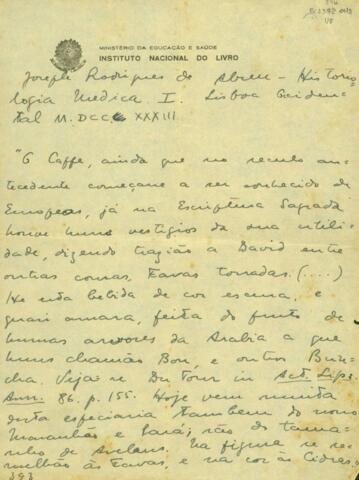 MINISTÉRIO DA EDUCAÇÃO E SAÚDE
INSTITUTO NACIONAL DO LIVRO
Joseph Rodrigues de Abreu - Histo
logia Medica I. Lisboa Occiden
tal M. DCC XXXIII
"O Caffe, ainda que no seculo an-
tecedente começasse a ser conhecido de
Europeos, já na Escriptura Sagrada
houve huns vestigios da sua utili-
dade, dizendo trazião a David entre
outras cousas, Favas torradas. (....)
He esta bebida de cor escura, e
quasi amara, feita do fruto de
humas arvores da Arabia a que
huns chamão Bon, e outros Bun-
cha. Veja-se Du Tour in Act. Lips.
Ann. 86. p. 155. Hoje vem muita
desta especiaria tambem do nosso
Maranhão e Pará; são do tama-
nho de Avelans. Na figura se as
semelhão às Favas, e na cor às Cidras.